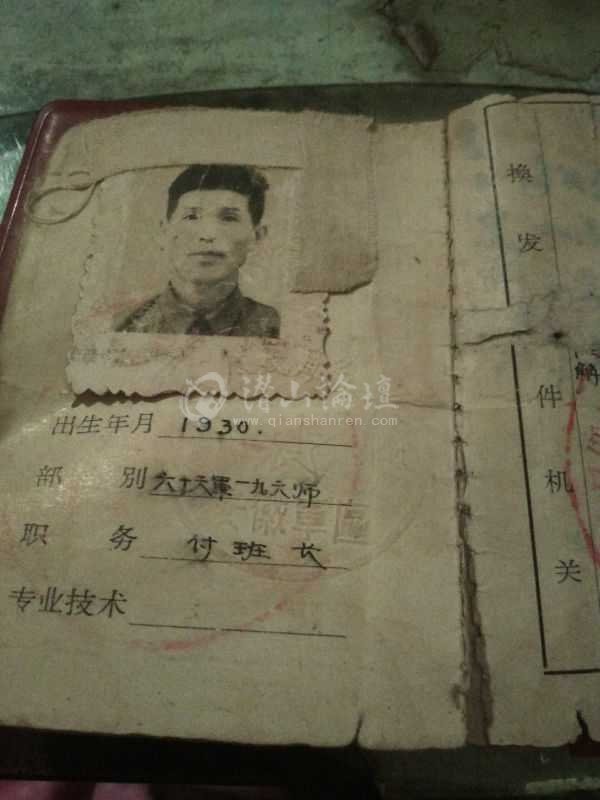 潜山论坛
www.qianshanren.com
出生年月 1930.
部别 六十六军一九六师
职务 付班长
专业技术
换发
件机关